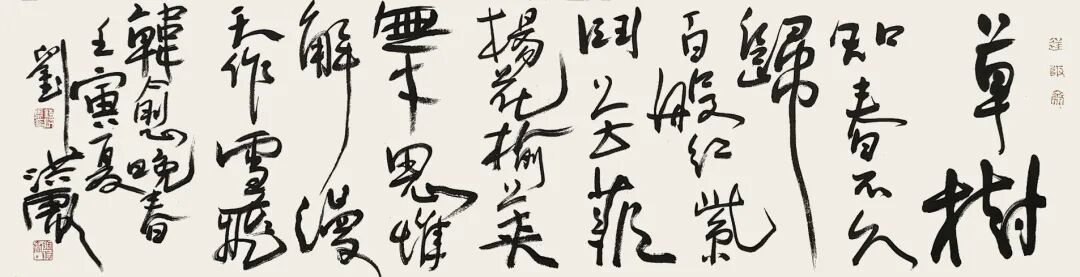 草樹
知春不久
歸
百般紅紫
鬥芳菲
揚花榆莢
無才思惟
解漫
天作雪飛
韓愈晚春
壬寅夏
劉洪彪